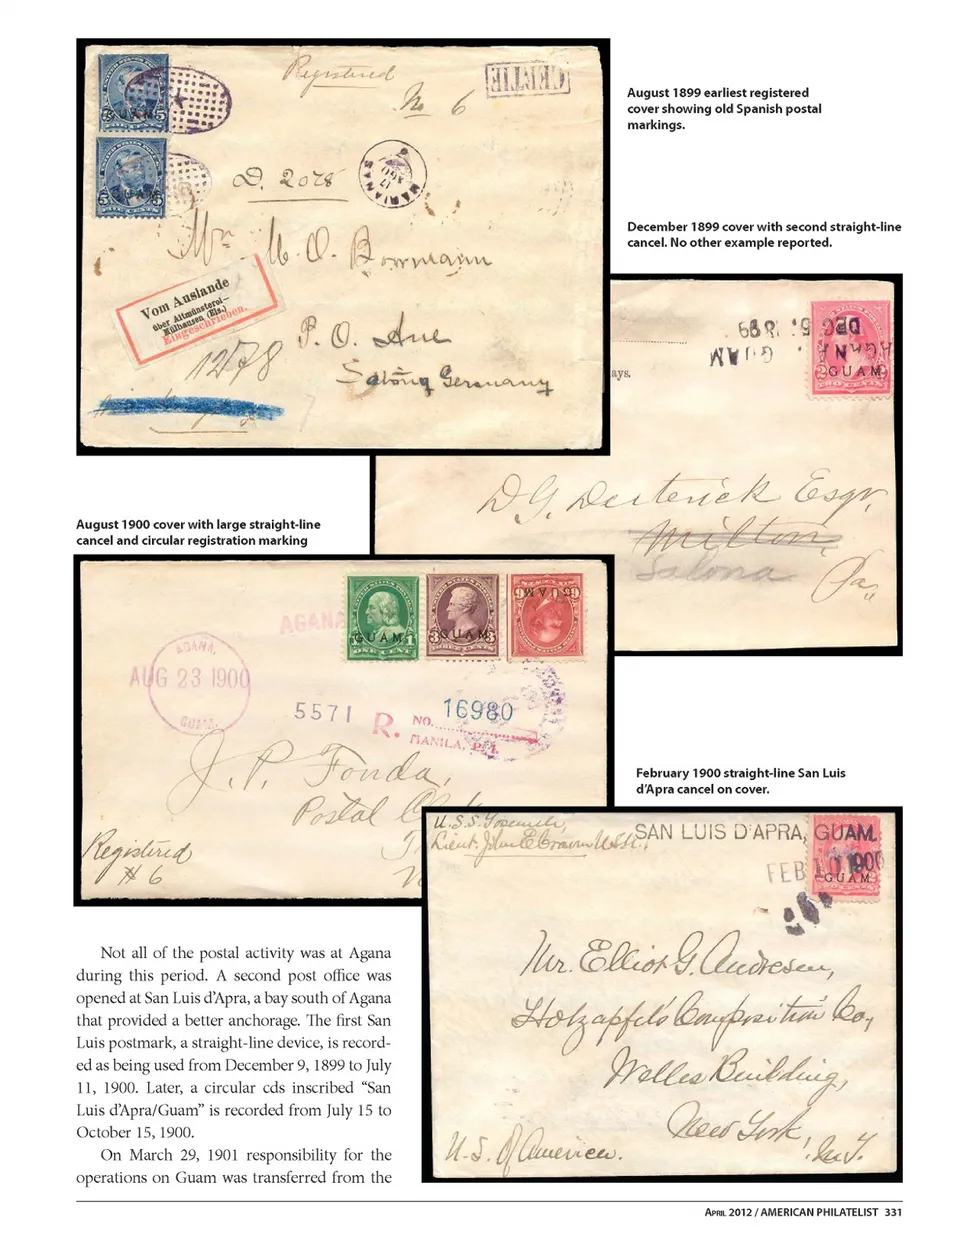 Registered
No 6
CERTIF
GUAM
5
5
GUAM
5
5
D. 2078
MARIANAS
17
AGO
Mr M. O. Bowmann
Vom Auslande
über Altmünsterol—
Mülhausen (Els.)
Eingeschrieben.
1278
P. O. Aue
Germany
August 1899 earliest registered
cover showing old Spanish postal
markings.
December 1899 cover with second straight-line
cancel. No other example reported.
DEC 5. 1899
AGANA
GUAM
2 GUAM
ays.
D. G. Derterick Esqr.
Milton
Salona Pa.
August 1900 cover with large straight-line
cancel and circular registration marking
AGANA
GUAM
1
ONE CENT
3 GUAM 3
GUAM
6
AGANA.
AUG 23 1900
GUAM.
5571
R. NO. 16980
MANILA, P.I.
J. P. Fonda,
Postal
Registered
# 6
February 1900 straight-line San Luis
d’Apra cancel on cover.
U.S.S. Yosemite,
Lieut. John E. Craven U.S.N.
SAN LUIS D'APRA, GUAM.
FEB 10 1900
GUAM
2
Mr. Elliot G. Andresen,
Holzapfel's Composition Co,
Welles Building,
New York,
N.Y.
U.S. Of America.
Not all of the postal activity was at Agana
during this period. A second post office was
opened at San Luis d’Apra, a bay south of Agana
that provided a better anchorage. The first San
Luis postmark, a straight-line device, is record-
ed as being used from December 9, 1899 to July
11, 1900. Later, a circular cds inscribed “San
Luis d’Apra/Guam” is recorded from July 15 to
October 15, 1900.
On March 29, 1901 responsibility for the
operations on Guam was transferred from the
APRIL 2012 / AMERICAN PHILATELIST 331